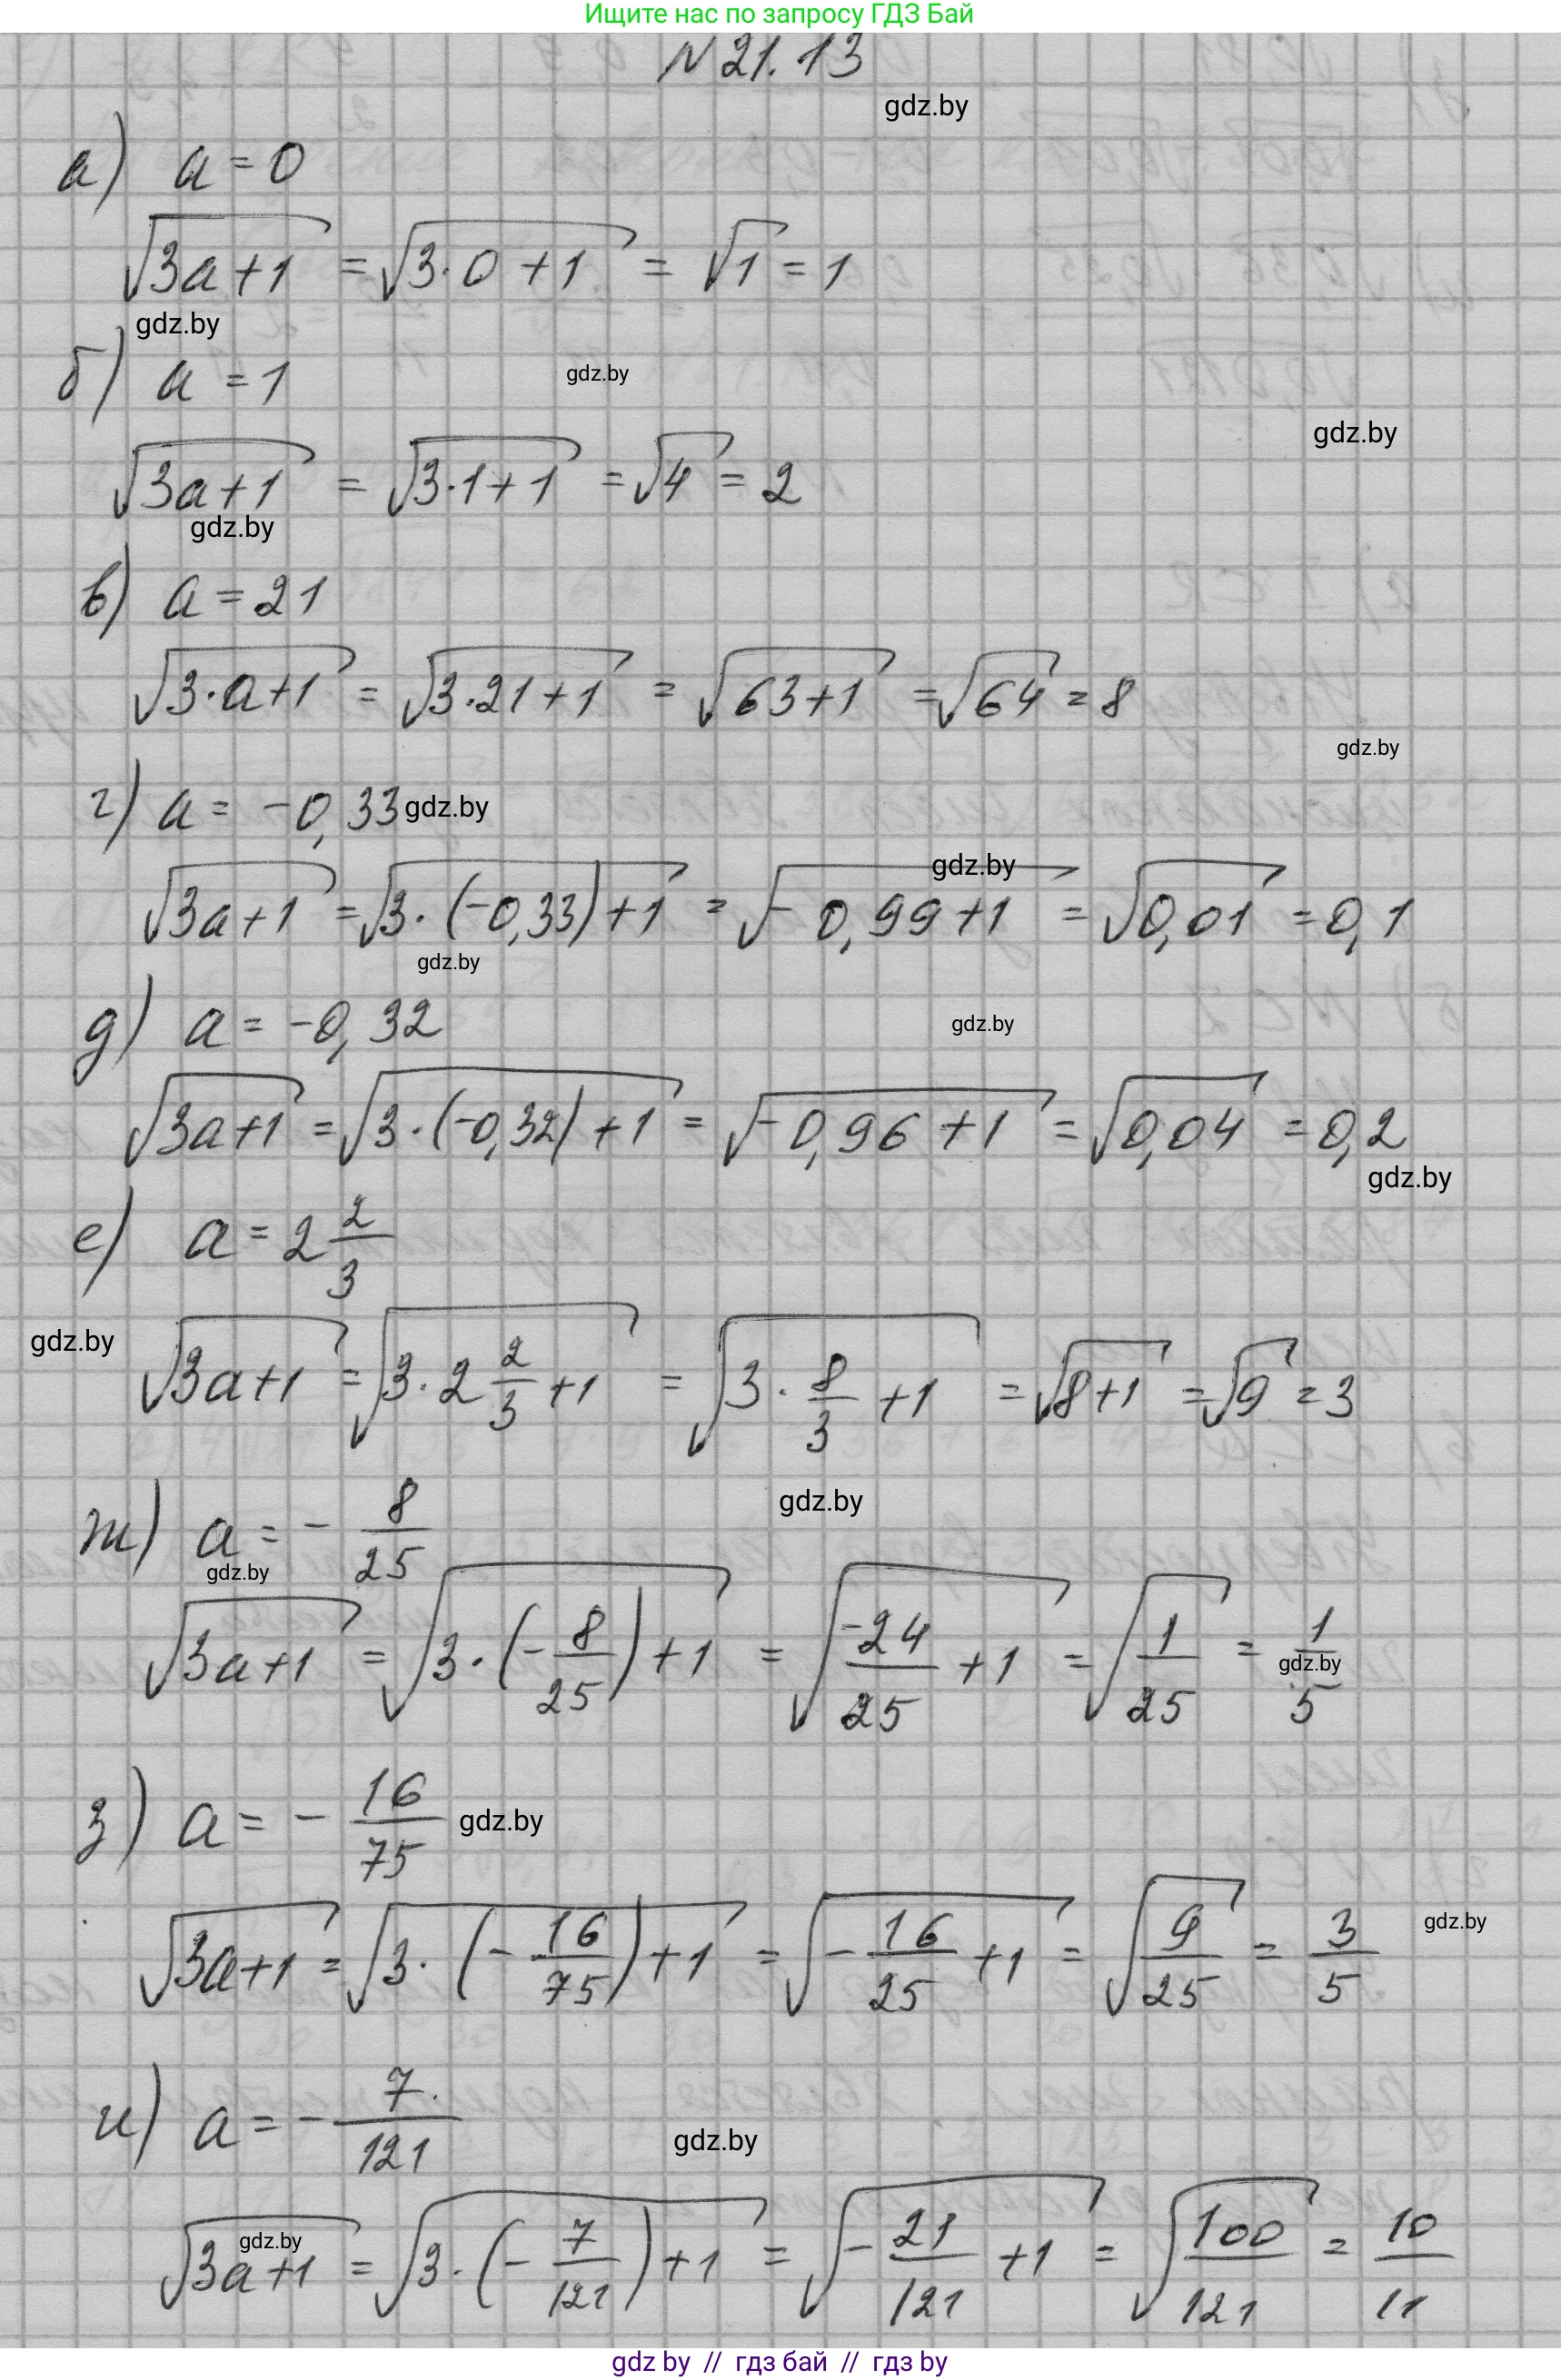 Ищите нас по запросу ГДЗ Бай
№ 21.13
gdz.by
а) a = 0
√(3a+1) = √(3·0+1) = √1 = 1
gdz.by
б) a = 1
gdz.by
gdz.by
√(3a+1) = √(3·1+1) = √4 = 2
gdz.by
в) a = 21
√(3·a+1) = √(3·21+1) = √(63+1) = √64 = 8
gdz.by
г) a = -0,33 gdz.by
gdz.by
√(3a+1) = √(3·(-0,33)+1) = √(-0,99+1) = √0,01 = 0,1
gdz.by
д) a = -0,32
gdz.by
√(3a+1) = √(3·(-0,32)+1) = √(-0,96+1) = √0,04 = 0,2
gdz.by
е) a = 2 2/3
gdz.by
√(3a+1) = √(3·2 2/3+1) = √(3·8/3+1) = √(8+1) = √9 = 3
gdz.by
ж) a = - 8/25
gdz.by
√(3a+1) = √(3·(-8/25)+1) = √(-24/25+1) = √(1/25) = 1/5
gdz.by
з) a = - 16/75 gdz.by
gdz.by
√(3a+1) = √(3·(-16/75)+1) = √(-16/25+1) = √(9/25) = 3/5
и) a = - 7/121
gdz.by
gdz.by
√(3a+1) = √(3·(-7/121)+1) = √(-21/121+1) = √(100/121) = 10/11
gdz by // гдз бай // гдз by